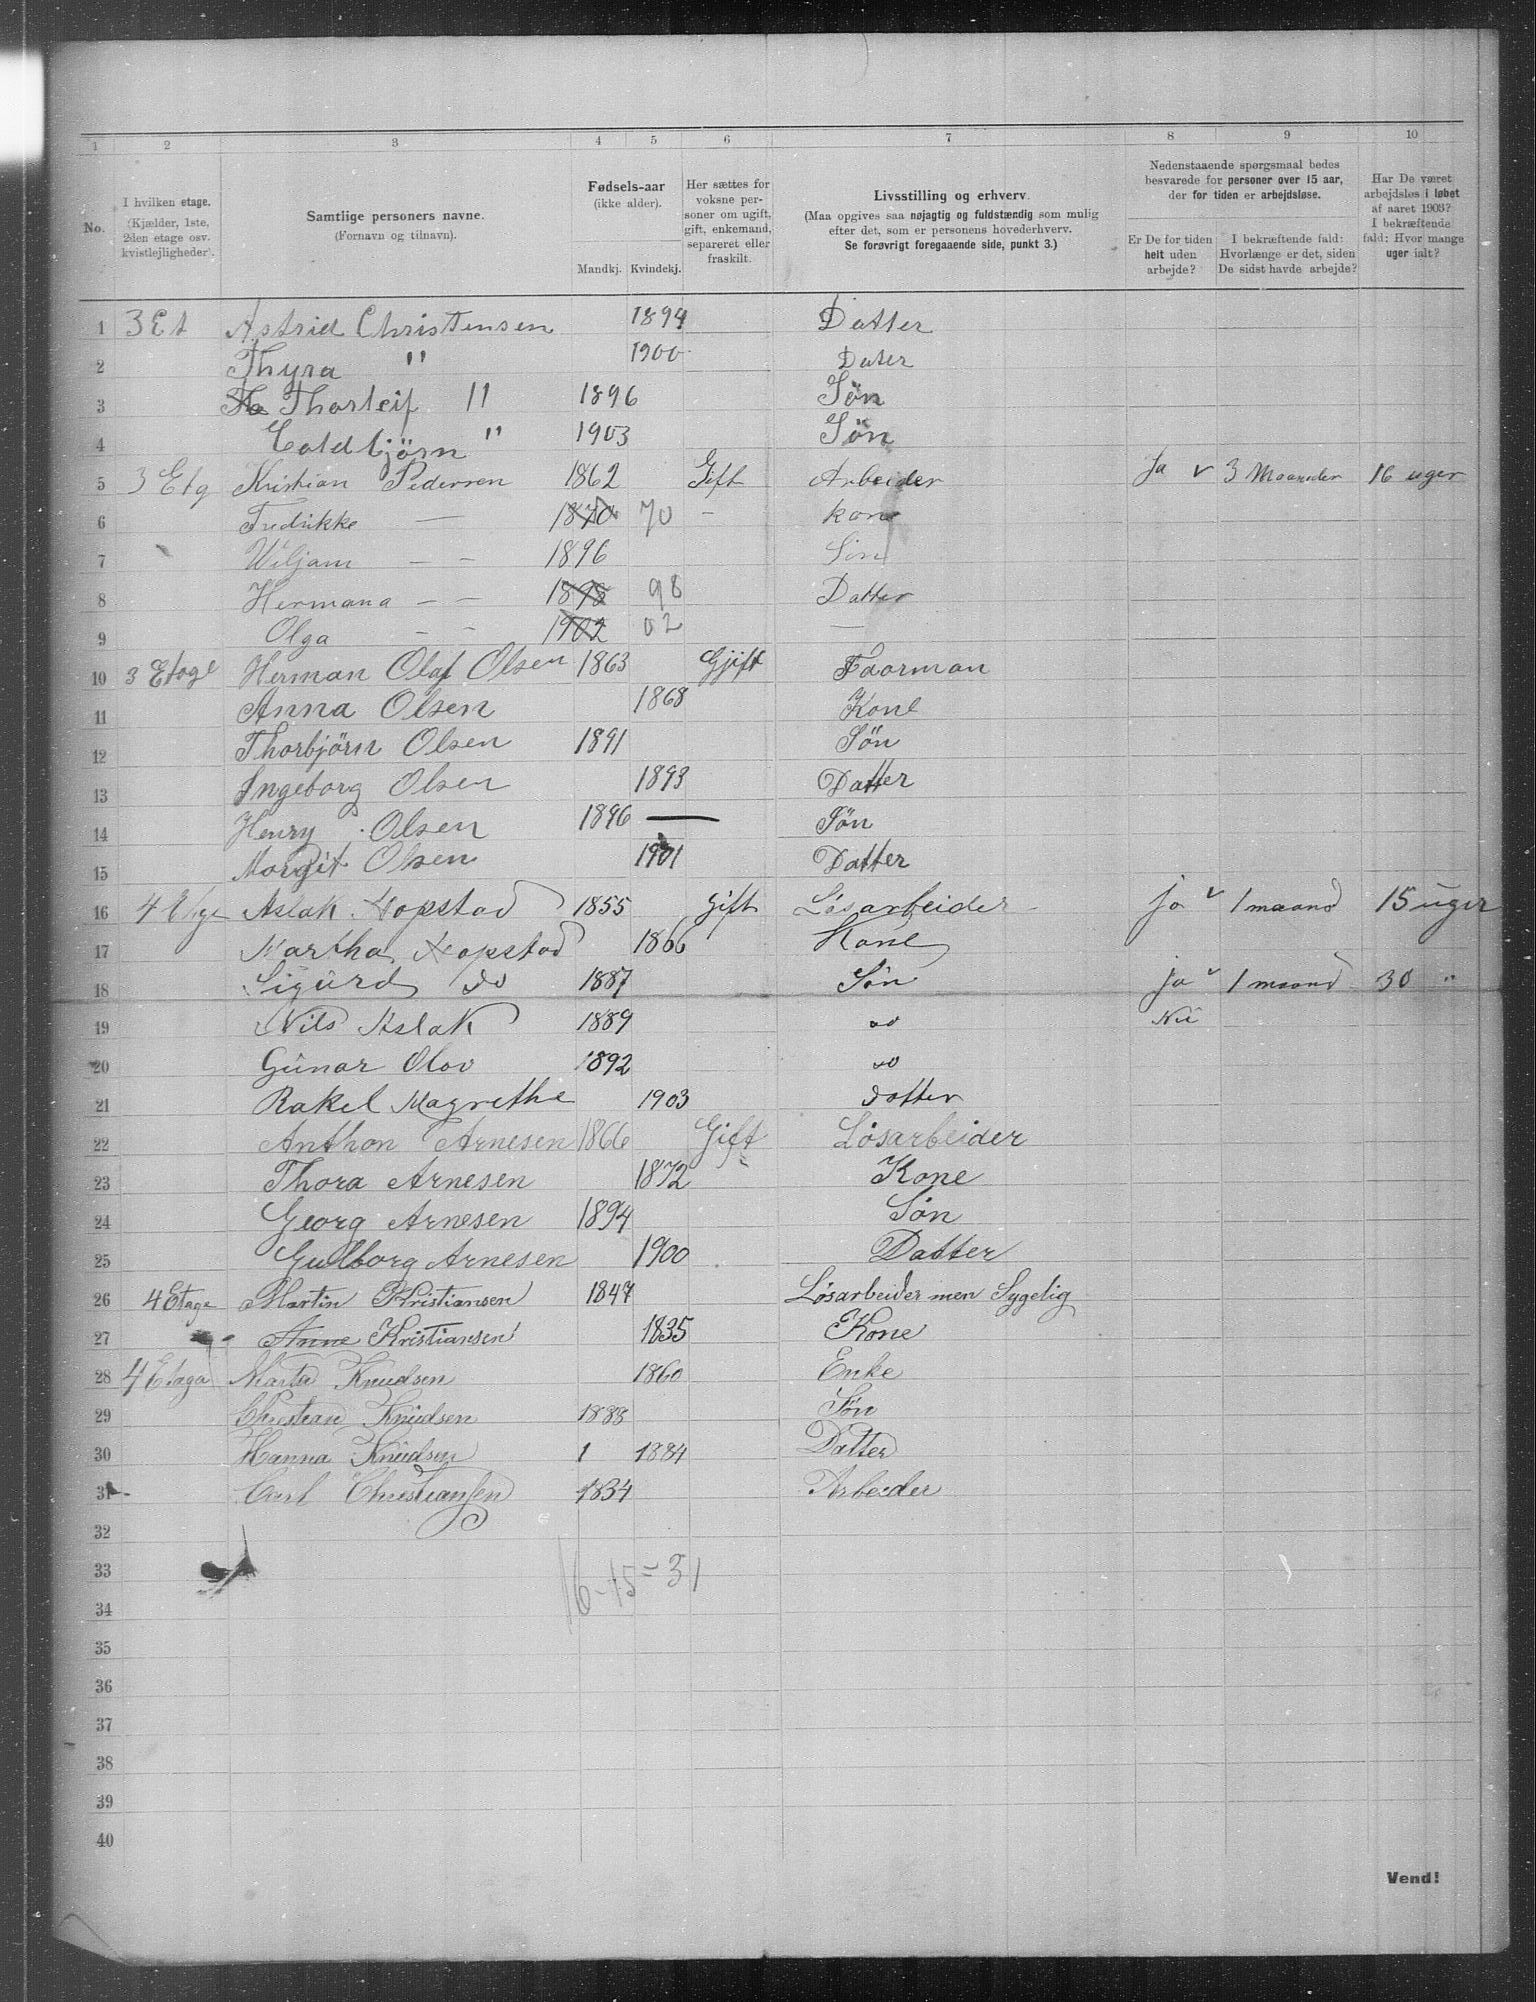 1 2 3 4 5 6 7 8 9 10
No.
I hvilken etage.
(Kjælder, 1ste,
2den etage osv.
kvistlejligheder).
Samtlige personers navne.
(Fornavn og tilnavn).
Fødsels-aar
(ikke alder).
Mandkj. Kvindekj.
Her sættes for
voksne per-
soner om ugift,
gift, enkemand,
separeret eller
fraskilt.
Livsstilling og erhverv.
(Maa opgives saa nøjagtig og fuldstændig som mulig
efter det, som er personens hovederhverv.
Se forøvrigt foregaaende side, punkt 3.)
Nedenstaaende spørgsmaal bedes
besvarede for personer over 15 aar,
der for tiden er arbejdsløse.
Er De for tiden
helt uden
arbejde?
I bekræftende fald:
Hvorlænge er det, siden
De sidst havde arbejde?
Har De været
arbejdsløs i løbet
af aaret 1903?
I bekræftende
fald: Hvor mange
uger ialt?
1 3 Et Astrid Christensen 1894 Datter
2 Thyra " 1900 Dater
3 Thorleif " 1896 Søn
4 " 1903 Søn
5 3 Etg Kristian Pedersen 1862 Gift Arbeider Ja v 3 Maaneder 16 uger
6 Fredrikke — 1870 70 - kone
7 Wiljam — — 1896 Sön
8 Hermana — — 1898 98 Datter
9 Olga — — 1902 02 —
10 3 Etage Herman Olaf Olsen 1863 Gjift Faorman
11 Anna Olsen 1868 Kone
12 Thorbjörn Olsen 1891 Søn
13 Ingeborg Olsen 1893 Datter
14 Henry Olsen 1896 — Søn
15 Margit Olsen 1901 Datter
16 4 Etge Aslak Hopstad 1855 Gift Løsarbeider ja v 1 maand 15 uger
17 Martha Hopstad 1866 Kone
18 Sigurd do 1887 Søn ja v 1 maand 30 "
19 Nils Aslak 1889 do Nei
20 Gunar Olav 1892 do
21 Rakel Magrethe 1903 datter
22 Anthon Arnesen 1866 Gift Løsarbeider
23 Thora Arnesen 1872 " Kone
24 Georg Arnesen 1894 Søn
25 Gulborg Arnesen 1900 Datter
26 4 Etage Martin Kristiansen 1847 Løsarbeider men Sygelig
27 Anne Kristiansen 1835 Kone
28 4 Etaga Marta Knudsen 1860 Enke
29 Christian Knudsen 1888 Søn
30 Hanna Knudsen 1 1884 Datter
31 Carl Christiansen 1834 Arbeider
32
33
16-15=31
34
35
36
37
38
39
40
Vend!